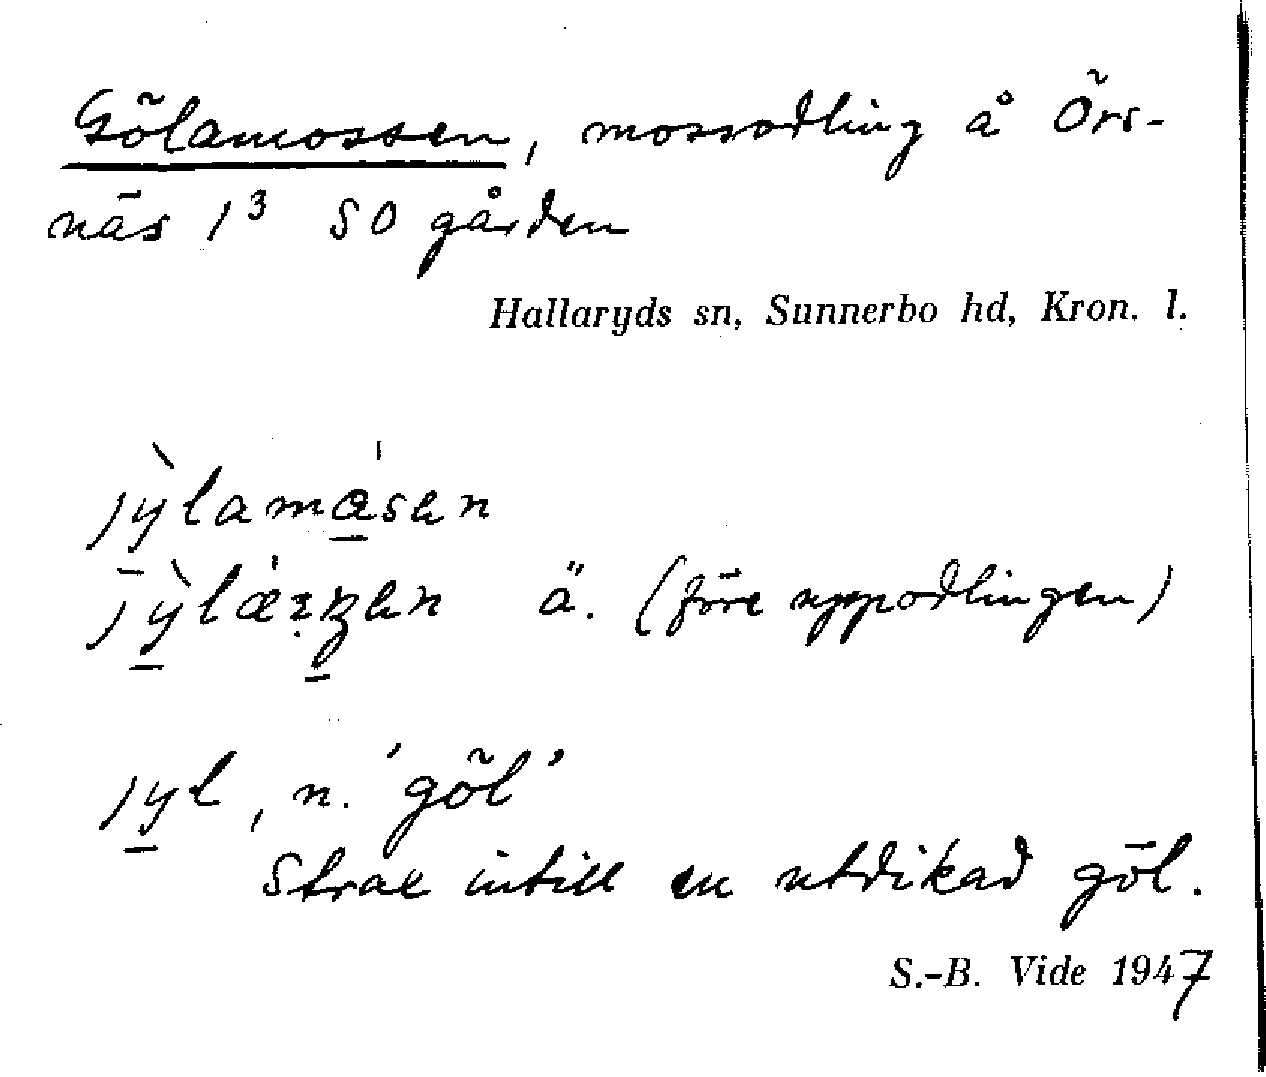 Gölamossen, mossodling å Örs-
näs 1³ SO gården
Hallaryds sn, Sunnerbo hd, Kron. l.
jỳlamásen
ä. (före uppodlingen)
jyl, n. 'göl'
Strax intill en utdikad göl.
S.-B. Vide 1947